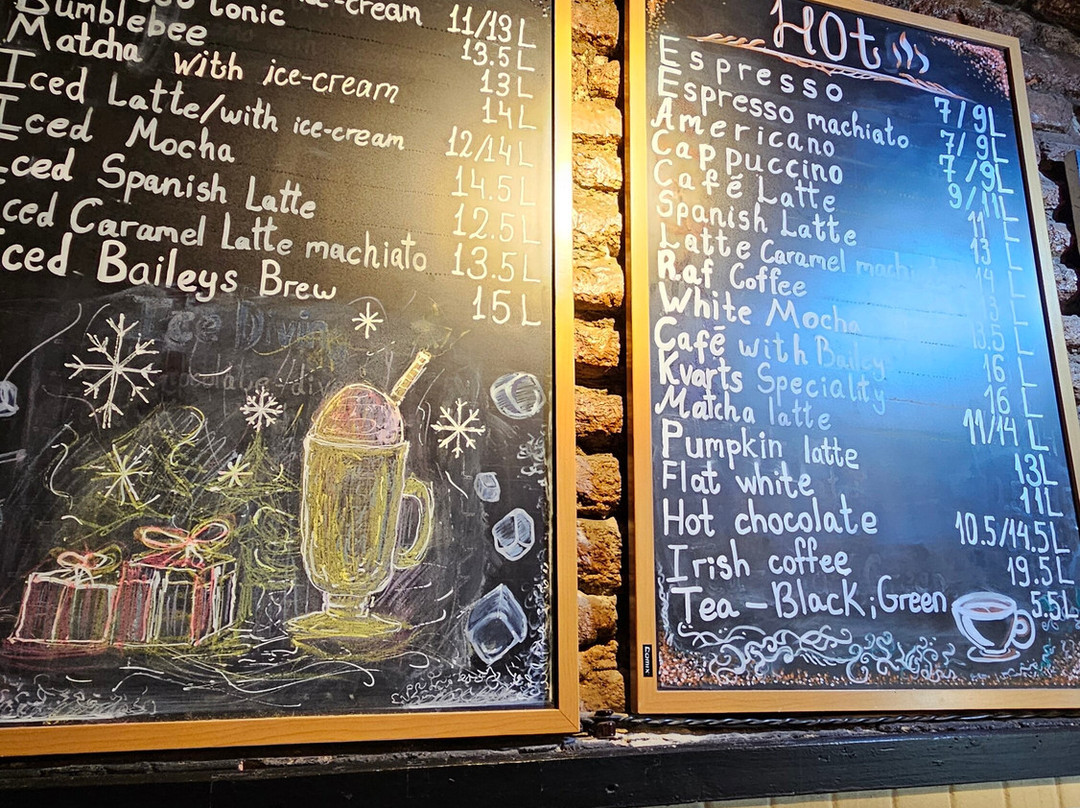 ice-cream 11/13 L
tonic 13.5 L
Bumblebee 13 L
Matcha with ice-cream 14 L
Iced Latte/with ice-cream 12/14 L
Iced Mocha 14.5 L
Iced Spanish Latte 12.5 L
Iced Caramel Latte machiato 13.5 L
Iced Baileys Brew 15 L
HOt
Espresso 7/9L
Espresso machiato 7/9L
Americano 7/9L
Cappuccino 9/11L
Café Latte 11 L
Spanish Latte 13 L
Latte Caramel 14 L
Raf Coffee 13 L
White Mocha 13.5 L
Café with Bailey 16 L
Kvarts Specialty 16 L
Matcha latte 11/14 L
Pumpkin latte 13L
Flat white 11L
Hot chocolate 10.5/14.5L
Irish coffee 19.5L
Tea – Black; Green 5.5L
COMIX